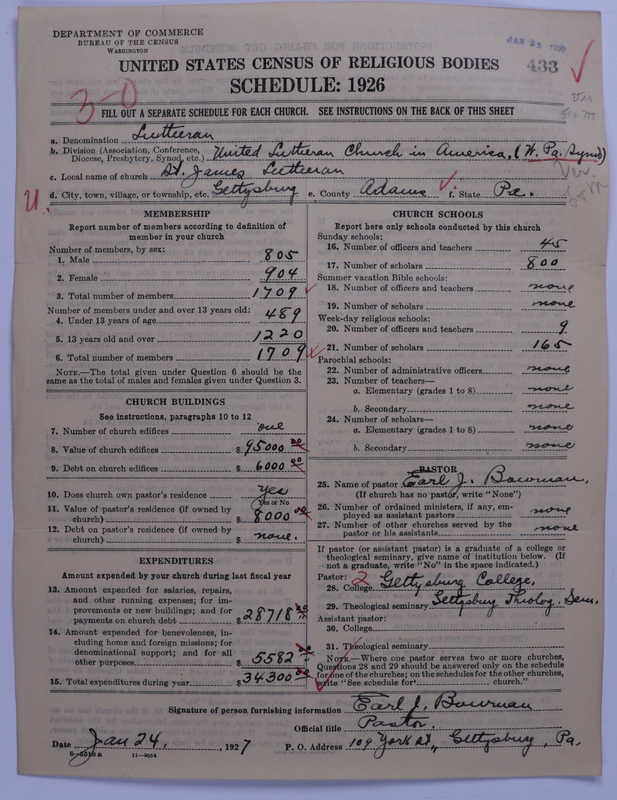 DEPARTMENT OF COMMERCE
BUREAU OF THE CENSUS
WASHINGTON
JAN 25
433
UNITED STATES CENSUS OF RELIGIOUS BODIES
SCHEDULE: 1926
3-0
FILL OUT A SEPARATE SCHEDULE FOR EACH CHURCH. SEE INSTRUCTIONS ON THE BACK OF THIS SHEET
a. Denomination Lutheran
b. Division (Association, Conference, Diocese, Presbytery, Synod, etc.) United Lutheran Church in America, (W. Pa. Synod)
c. Local name of church St. James Lutheran
d. City, town, village, or township, etc. Gettysburg e. County Adams f. State Pa.
MEMBERSHIP
Report number of members according to definition of
member in your church
Number of members, by sex:
1. Male 805
2. Female 904
3. Total number of members 1709
Number of members under and over 13 years old:
4. Under 13 years of age 489
5. 13 years old and over 1220
6. Total number of members 1709
NOTE.—The total given under Question 6 should be the
same as the total of males and females given under Question 3.
CHURCH BUILDINGS
See instructions, paragraphs 10 to 12
7. Number of church edifices one
8. Value of church edifices $95000 00
9. Debt on church edifices $6000 00
10. Does church own pastor's residence Yes
Yes or No
11. Value of pastor's residence (if owned by
church) $8000 00
12. Debt on pastor's residence (if owned by
church) $ none.
EXPENDITURES
Amount expended by your church during last fiscal year
13. Amount expended for salaries, repairs,
and other running expenses; for im-
provements or new buildings; and for
payments on church debt $28718
14. Amount expended for benevolences, in-
cluding home and foreign missions; for
denominational support; and for all
other purposes $5582 00
15. Total expenditures during year $34300 00
CHURCH SCHOOLS
Report here only schools conducted by this church
Sunday schools:
16. Number of officers and teachers 45
17. Number of scholars 800
Summer vacation Bible schools:
18. Number of officers and teachers none
19. Number of scholars none
Week-day religious schools:
20. Number of officers and teachers 9
21. Number of scholars 165
Parochial schools:
22. Number of administrative officers none
23. Number of teachers—
a. Elementary (grades 1 to 8) none
b. Secondary none
24. Number of scholars—
a. Elementary (grades 1 to 8) none
b. Secondary none
PASTOR
25. Name of pastor Earl J. Bowman.
(If church has no pastor, write "None")
26. Number of ordained ministers, if any, em-
ployed as assistant pastors none
27. Number of other churches served by the
pastor or his assistants none
If pastor (or assistant pastor) is a graduate of a college or
theological seminary, give name of institution below. (If
not a graduate, write "No" in the space indicated.)
Pastor: 2
28. College Gettysburg College.
29. Theological seminary Gettysburg Theolog. Sem.
Assistant pastor:
30. College
31. Theological seminary
NOTE.—Where one pastor serves two or more churches,
Questions 28 and 29 should be answered only on the schedule
for one of the churches; on the schedules for the other churches,
write "See schedule for church."
Signature of person furnishing information Earl J. Bowman
Official title Pastor.
Date Jan 24, 1927 P. O. Address 109 York St., Gettysburg, Pa.
11—9054